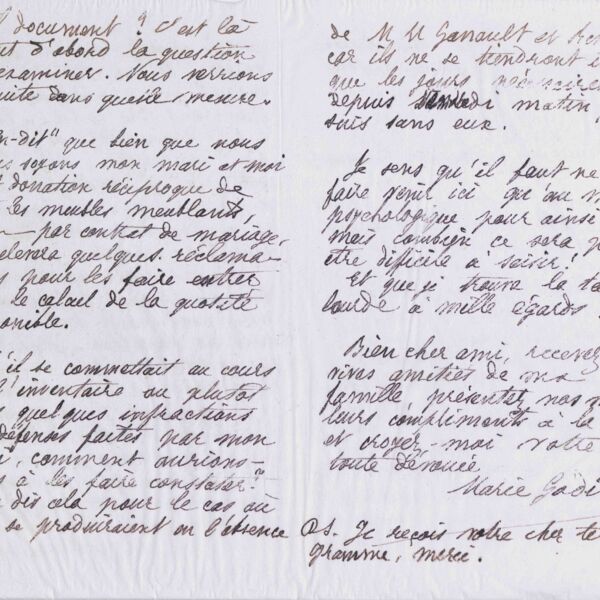 document ? C'est là
d'abord la question
examiner. Nous verrions
dans quelle mesure.
-dit" que bien que nous
soyons mon mari et moi
donation réciproque de
les meubles meublants,
- par contrat de mariage,
quelques réclama-
pour les faire entrer
le calcul de la quotité
ponible.
'il se commettait au cours
l'inventaire ou plutôt
quelques infractions
défenses faites par mon
comment aurions-
à les faire constater ?
dis cela pour le cas où
se produiraient en l'absence
de M M Ganault et
car ils ne se tiendront i
que les jours nécessaires
depuis samedi matin,
suis sans eux.
Je sens qu'il faut ne
faire venir ici qu'au m
psychologique pour ainsi
mais combien ce sera p
être difficile à saisir !
Et que je trouve la ta
lourde à mille égards
Bien cher ami, recevez
vives amitiés de ma
famille, présentez nos m
leurs compliments à la
et croyez-moi votre
toute dévouée
Marie Godi
PS. Je reçois votre cher té
gramme, merci.